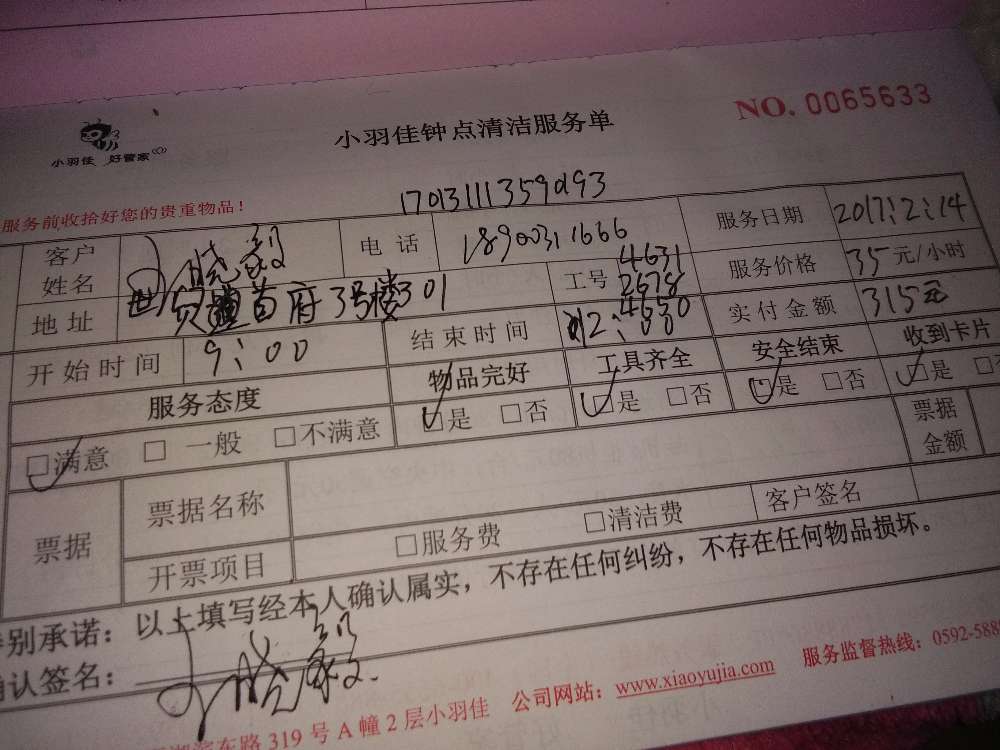 小羽佳 好管家
小羽佳钟点清洁服务单
NO. 0065633
服务前收拾好您的贵重物品！
客户姓名
电话 18900311666
服务日期 2017:2:14
地址 首府3号楼301
工号 4631 2678 4650
服务价格 35元/小时
开始时间 9:00
结束时间 12:00
实付金额 315元
服务态度 物品完好 工具齐全 安全结束 收到卡片
□满意 □一般 □不满意 □是 □否 □是 □否 □是 □否 □是
票据 票据名称 票据金额
开票项目 □服务费 □清洁费 客户签名
别承诺：以上填写经本人确认属实，不存在任何纠纷，不存在任何物品损坏。
认签名：
东路319号A幢2层小羽佳 公司网站：www.xiaoyujia.com 服务监督热线：0592-588